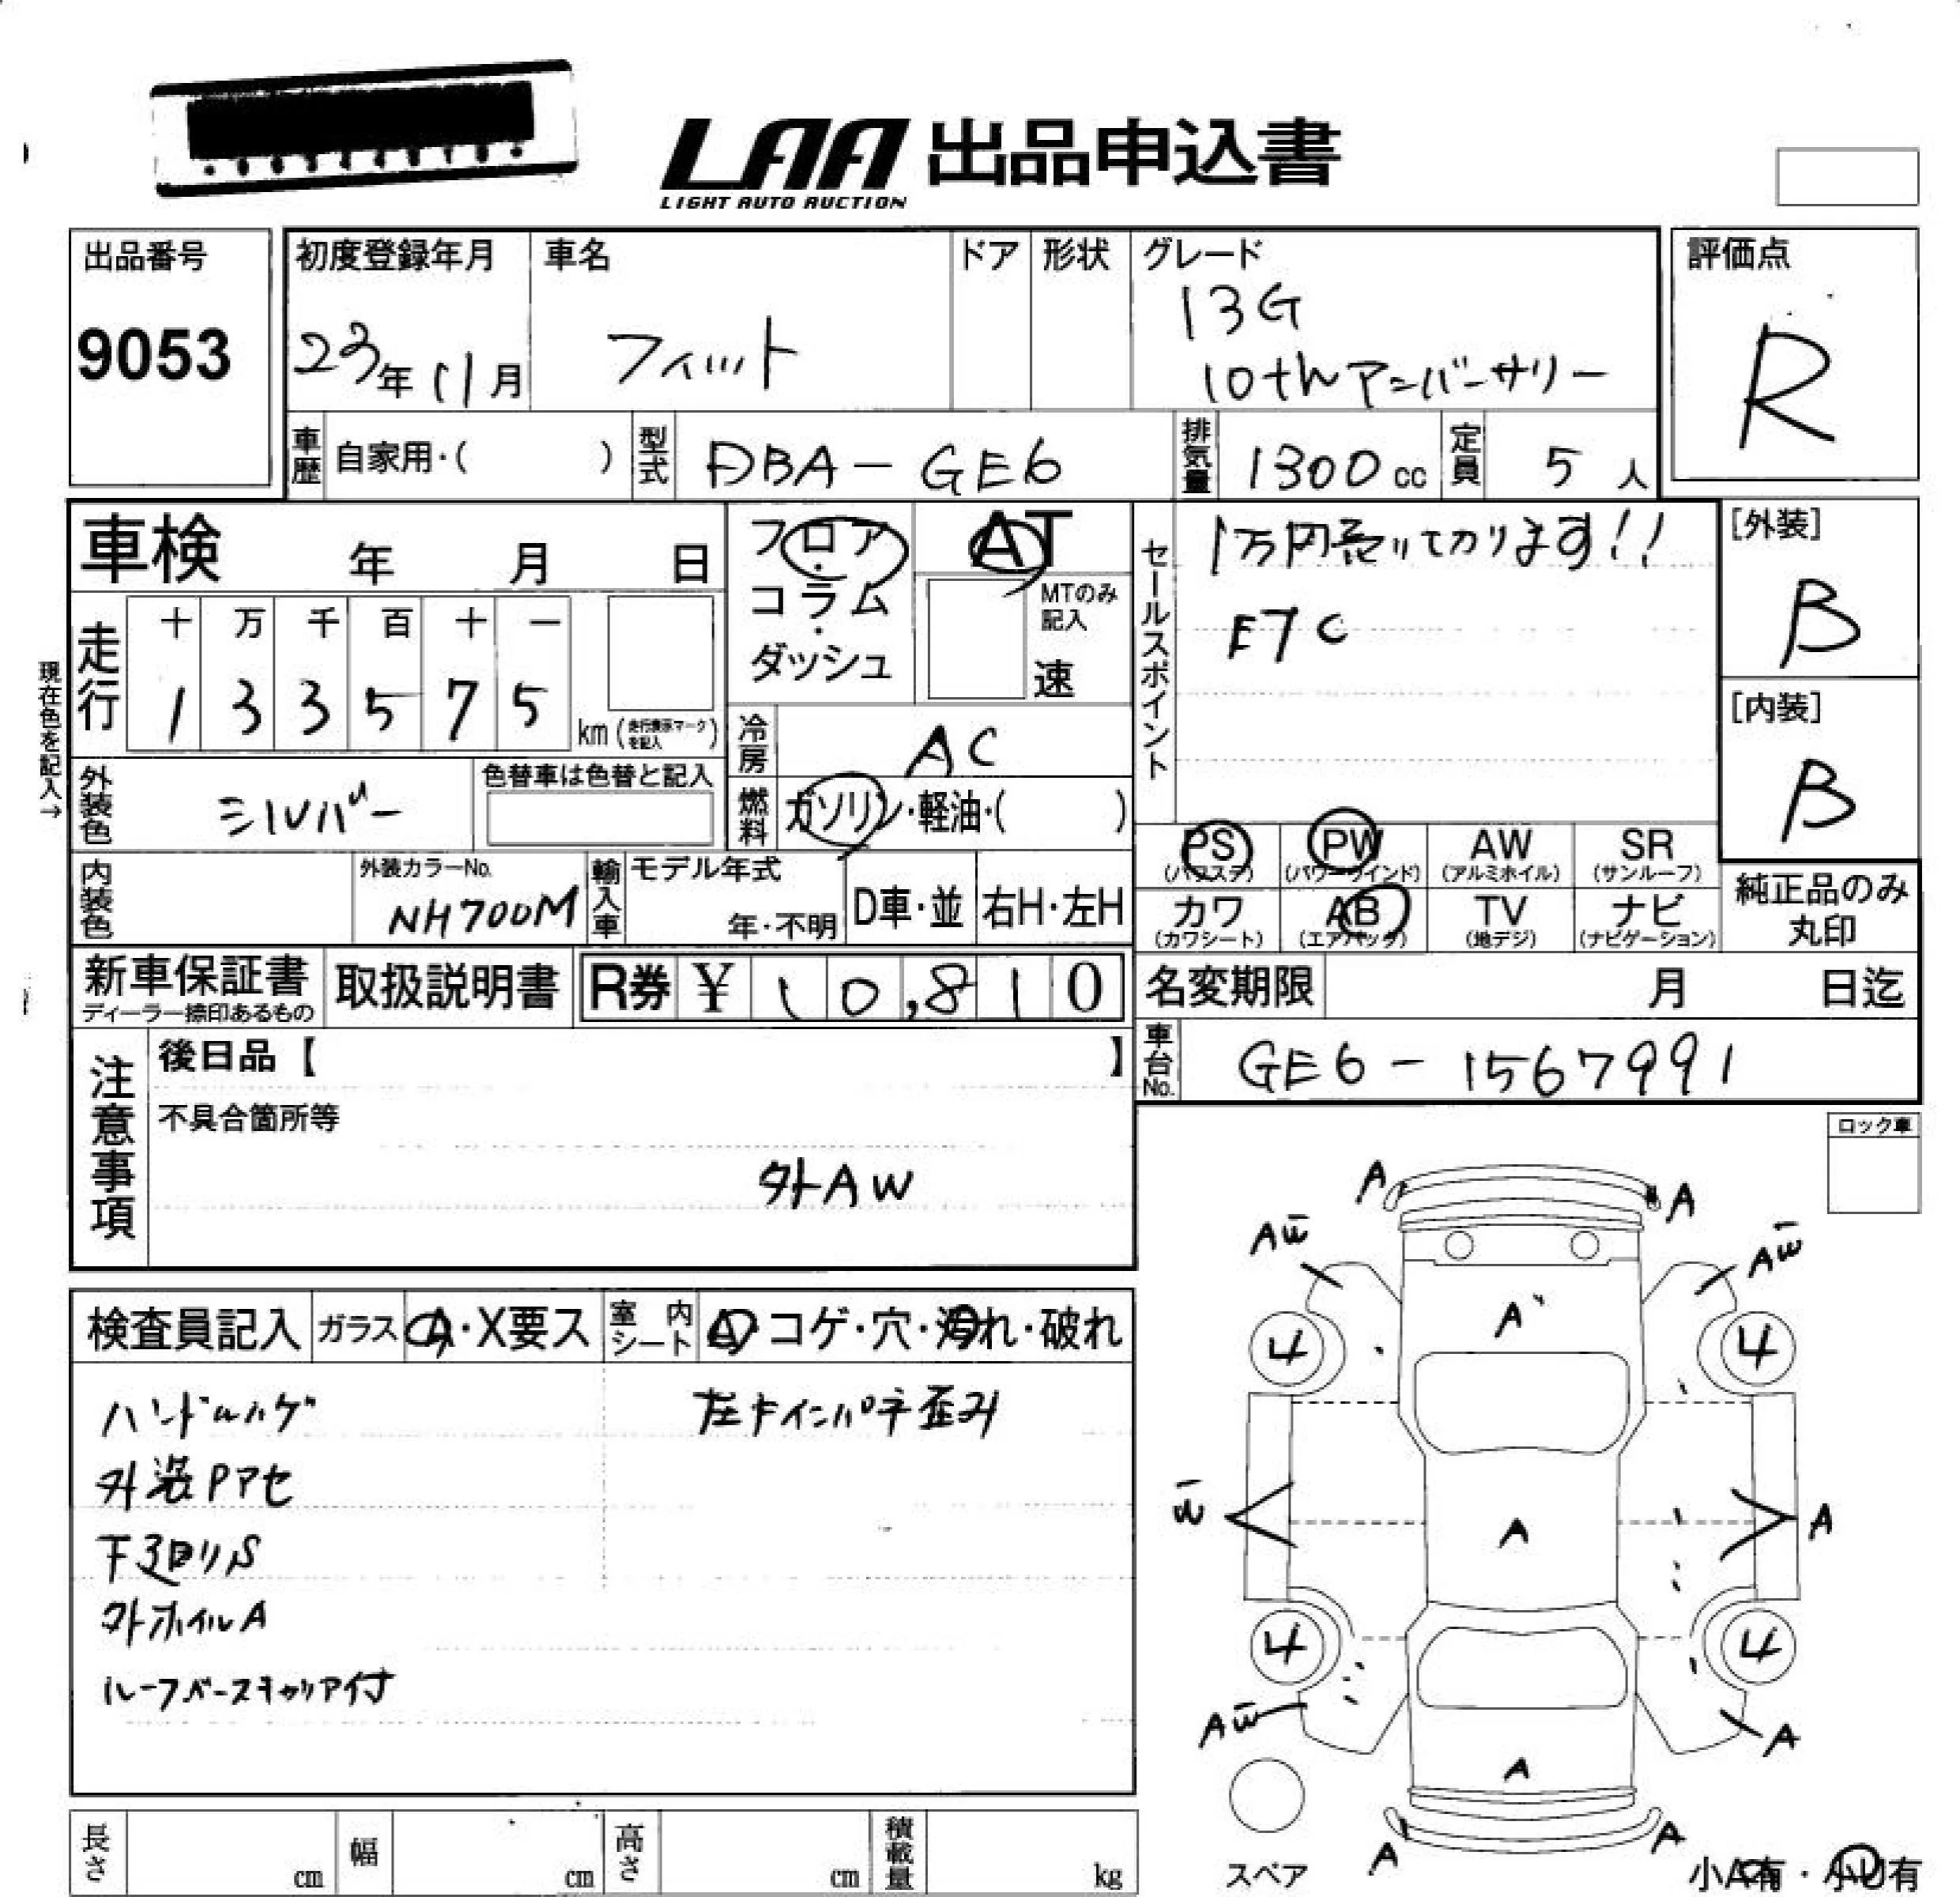 LAA 出品申込書
LIGHT AUTO AUCTION
出品番号
9053
初度登録年月
23年11月
車名
フィット
ドア
形状
グレード
13G
10thアニバーサリー
評価点
R
車歴 自家用・( )
型式 DBA-GE6
排気量 1300cc
定員 5人
車検 年 月 日
フロア・
コラム・
ダッシュ
AT
MTのみ
記入
速
セールスポイント
1万円売り切ります!!
ETC
[外装]
B
[内装]
B
現在色を記入→
走行
十 万 千 百 十 一
1 3 3 5 7 5
km(走行表示マークを記入)
冷房 AC
外装色 シルバー
色替車は色替と記入
燃料 ガソリン・軽油・( )
PS
(パワステ)
PW
(パワーウインド)
AW
(アルミホイル)
SR
(サンルーフ)
カワ
(カワシート)
AB
(エアバッグ)
TV
(地デジ)
ナビ
(ナビゲーション)
純正品のみ
丸印
内装色
外装カラーNo.
NH700M
輸入車
モデル年式
年・不明
D車・並
右H・左H
新車保証書
ディーラー捺印あるもの
取扱説明書
R券 ¥ 10,810
名変期限 月 日迄
車台No. GE6-1567991
注意事項
後日品【 】
不具合箇所等
外AW
ロック車
検査員記入
ガラス A・X要ス
室内シート A・コゲ・穴・汚れ・破れ
ハンドルハゲ
左F インパネ歪み
外装Pアセ
下廻りS
外ホイルA
ルーフベースキャリア付
A A
AW AW
A'
4 4
W A A
4 4
AW A
A
A A
スペア
小A有・小U有
長さ cm
幅 cm
高さ cm
積載量 kg